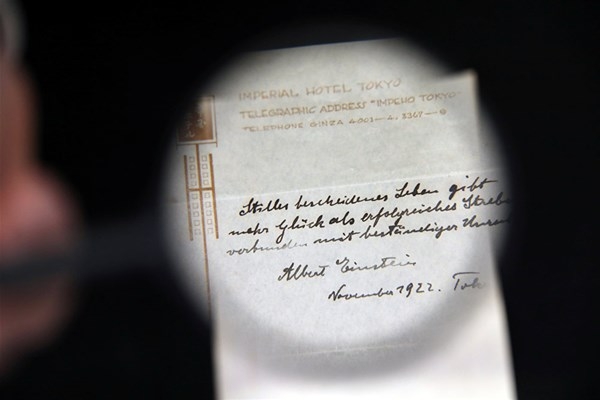 IMPERIAL HOTEL TOKYO
TELEGRAPHIC ADDRESS "IMPEHO TOKYO"
TELEPHONE GINZA 4001—4, 5367—9
Stilles bescheidenes Leben gibt
mehr Glück als erfolgreiches Strebe
verbunden mit beständiger Unru
Albert Einstein
November 1922. Tok